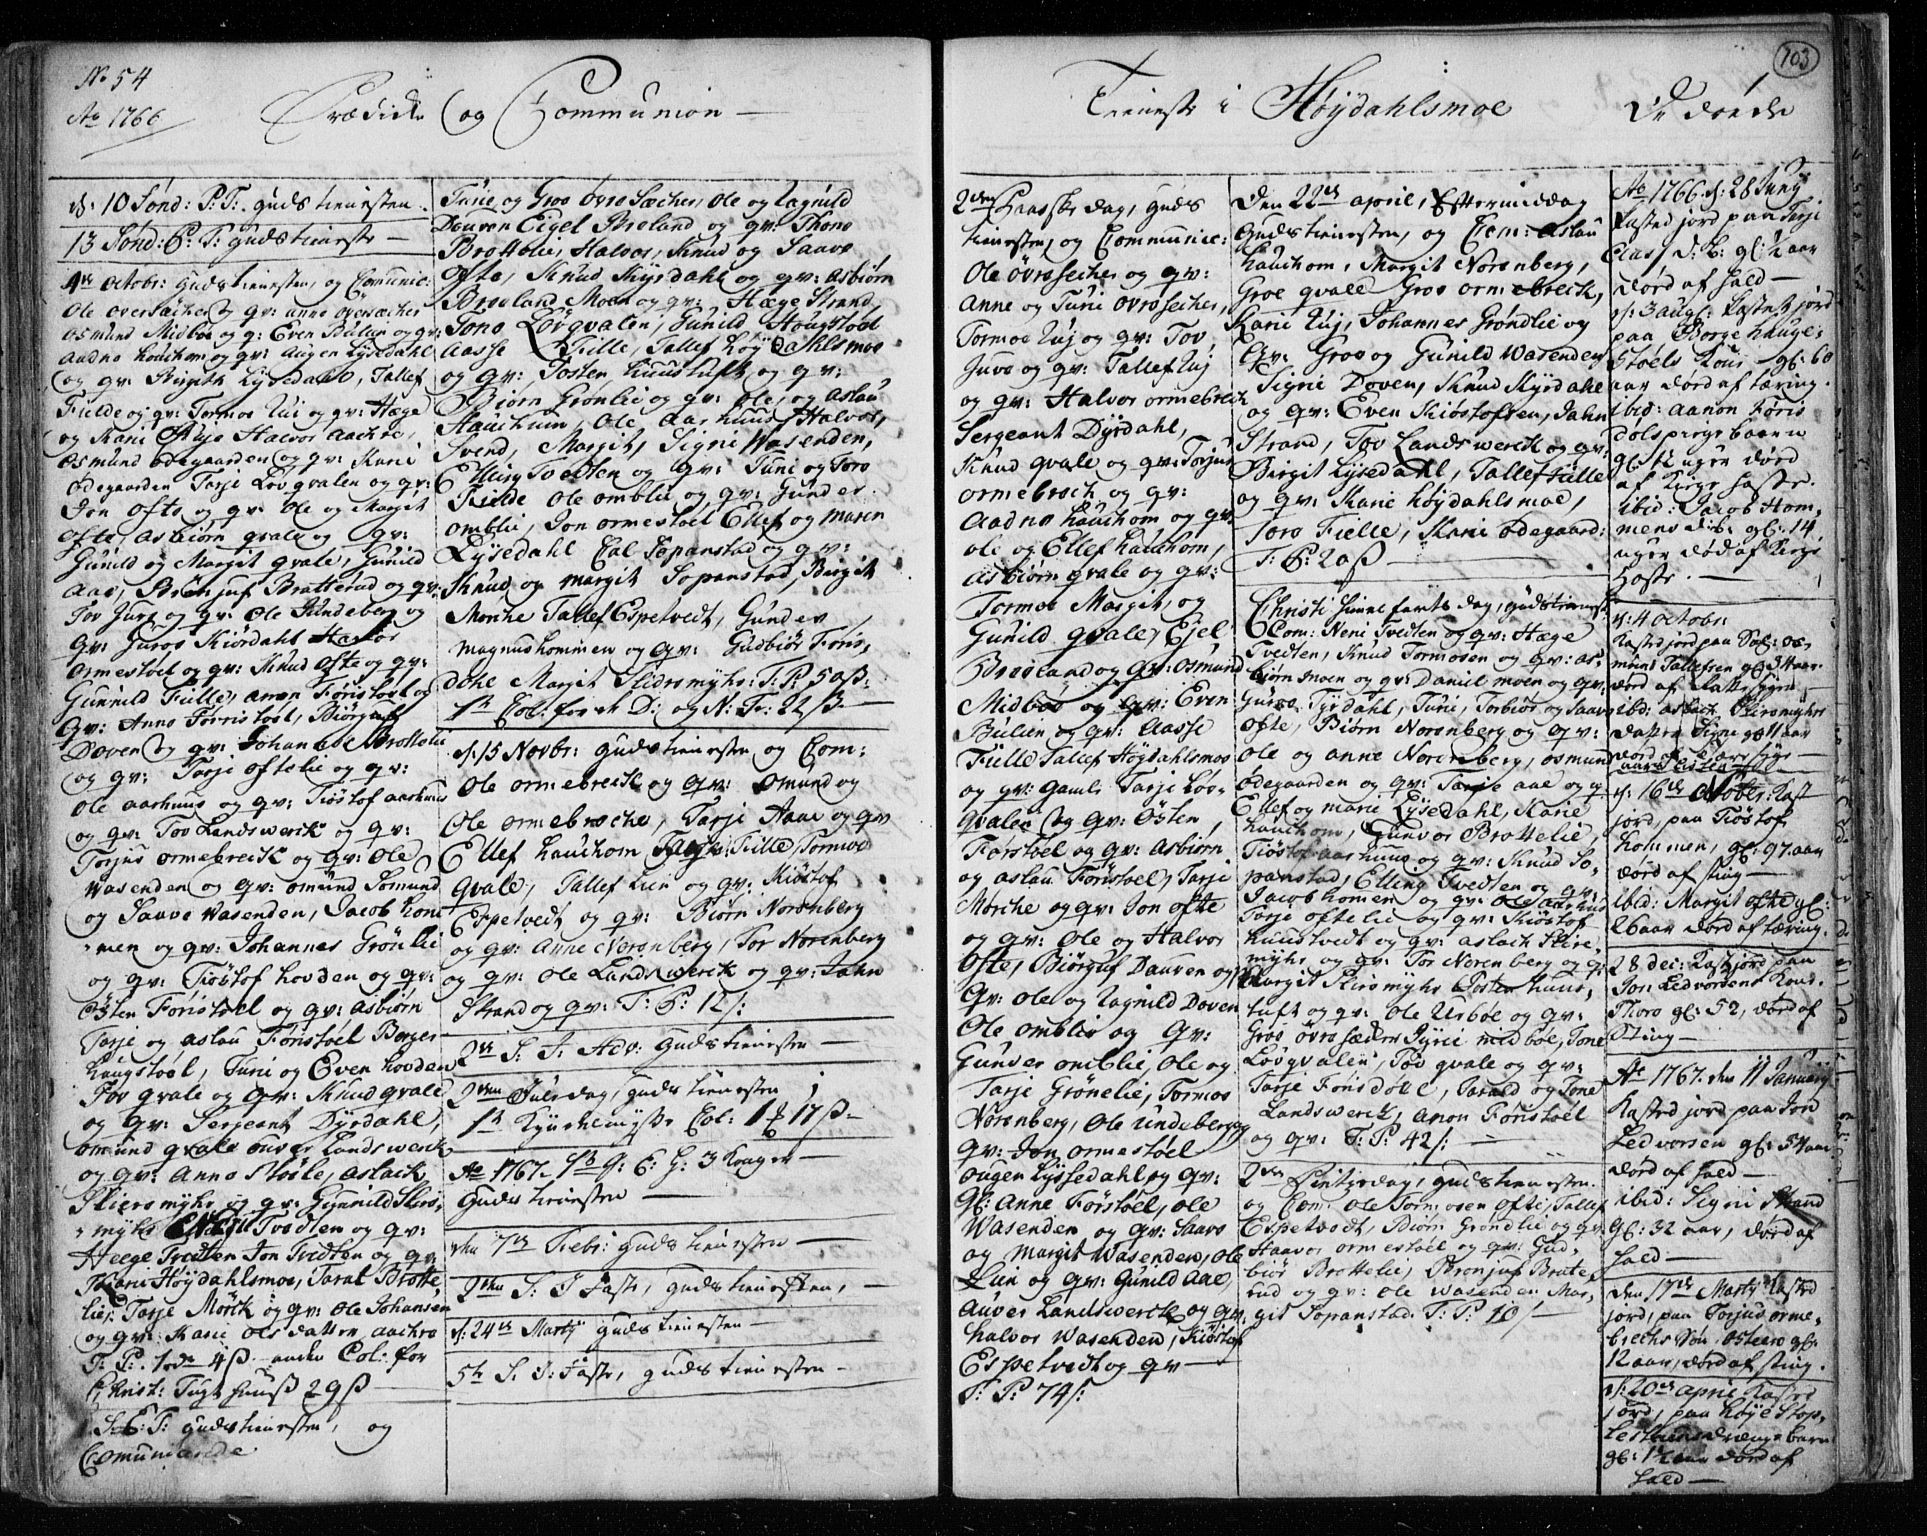 No 54
Ao 1766
Prædicke og Communion
d: 10 Sönd: P: T: gudstienesten
13 Sönd: P: T: gudstieneste
4de Octobr: gudstienesten, og Comunic:
Ole oversæcher og qv: anne oversæcher
osmund Midböe og q: Even Bulien og qv:
aadne hauchom og qv: augen Lysedahl
og qv: Birgith Lysedahl, Tallef
Fielde og qv: Tormoe Ruj og qv: Hæge
og Karie Halvor aachre,
Osmund ödegaarden og qv: Karie
ödegaarden Tarje Lövqvalen og qv:
Jon ofte og qv: Ole og Margit
ofte, asbiörn qvale og qv:
Gunild og Margit qvale, Gunild
Aae, Brönjuf Bratterud og qv:
Tov Juve og qv: Ole Undeberg og
qv: Guroe Kiördahl Halvor
ormestoel og qv: Knud ofte og qv:
Gunnild Fielle, anon Föristoel og
qv: Anne Förristöel, Biörguf
Doven og qv: Johannes Brottelie
og qv: Tarje oftelie og qv:
Ole aarhuus og qv: Kiöstof aarhuus
og qv: Tov Landswerck og qv:
Torjus ormebreck og qv: Ole
Wasenden og qv: omund Somund
og Saave Wasenden, Jacob hom
men og qv: Johannes Grönlie
og qv: Kiöstof hovden og qv:
östen Föristoel og qv: asbiörn
Tarje og aslau Föristoel Borger
haugstoel, Tuni og Even hovden
Tov qvale og qv: Knud qvale
og qv: Sergeant Dyrdahl,
omund qvale ouver Landswerck
og qv: Anne Moele, aslack
Skiersmyhr og qv: Gunnild Skiers
myhr Neri Tvedten og qv:
Heege Tvedten Jon Tvedten og qv:
Karie Höydahlsmoe, Taral Brotte
lie, Tarje Mörck og qv: Ole Johansen
og qv: Karie olsdatter aachre
T: P: 1rdr 4ß anden Col: for
Christ: Tugthuus 29ß
S: E: T: gudstienesten, og
Comunicerede
Turie og Groe övre Sæcher, Ole og Ragnild
Douven Eigel Breland og qv: Thone
Brottelie, Halvor, Knud og Saave
ofte, Knud Kyrdahl og qv: asbiörn
Breeland Moen og qv: Hæge Strand
Tone Lövqvalen, Gunild Hougstoel
Aasse Fille, Tallef höydahlsmoe
og qv: Josten huustuft og qv:
Biörn Grönlie og qv: Ole, og aslau
Hauchum, Ole aarhuus, Halvor,
Svend, Margit, Signe Wasenden,
Elling Tvedten og qv: Tuni og Toro
Fielde Ole omblie og qv: Gunder
omblie, Jon ormestoel Ellef og maren
Lysedahl Cal Sopanstad og qv:
Knud og margit Sopanstad, Birgit
Morche Tallef Espetvedt, Gunder
magnushommen og qv: Gudbiör Foris,
dahl Margit Skiersmyhr: T: P: 50ß:
1te Col: for D: og N: Fr: 22ß:
d: 15 Novbr: gudstieneste og Com:
Ole ormebreck og qv: omund og
Ole ormebreche, Tarje Aae og qv
Ellef hauchom Fille Tormoe
qvale, Tallef Lien og qv: Kiöstof
Espetvedt og qv: Biörn Norenberg
og qv: Anne Norenberg, Tor Norenberg
og qv: Ole Landswerck og qv: John
Strand og qv: T: P: 12/:
2den S: J: Adv: gudstieneste
2den Juledag, gudstienesten
1te Kyndelmysse Col: 17ß
Ao 1767. H: 3 Konger
Gudstienesten
den 7de Febr: gudstienesten
2den S: J Faste, gudstienesten,
d: 24de Marty gudstienesten
5te S: J: Faste, gudstienesten
Tieneste i Höydahlsmoe
2den Paaskedag, guds
tienesten, og Communic:
Ole övresecher og qv:
Anne og Tuni övresecher,
Tormoe Ruj og qv: Tov
Juve og qv: Tallef Ruj
og qv: Halvor ormebreck
Sergeant Dyrdahl,
Knud qvale og qv: Torjus
ormebreck og qv:
Aadne hauchom og qv:
ole og Ellef hauchom,
asbiörn qvale og qv:
Tormoe Margit, og
Gunild qvale, Ejel
Breeland og qv: osmund
Midböe og qv: Even
Bulien og qv: Aasse
Fielle Tallef Höydahlsmoe
og qv: gamle Tarje Lov-
qvalen og qv: Östen,
Forstoel og qv: asbiörn
og aslau Foristoel, Tarje
Morche og qv: Jon ofte
og qv: Ole og Halvor
Ofte, Biörguf Dauven og
qv: Ole og Ragnild Doven
Ole omblie og qv:
Gunder omblie, Ole og
Tarje Grönelie, Tormoe
Norenberg, Ole Undeberg og
qv: Jon ormestoel
ougen Lyssedahl og qv:
Gl: Anne Förstoel, Ole
Wasenden og qv: Saave
og Margit Wasenden, Ole
Lien og qv: Gunild Aae,
Auver Landswerck og qv:
halvor Wasenden, Kiöstof
Espetvedt og qv
T: P: 74/:
Den 22de april, Eftermiddag
Gudstienesten, og Com: aslau
hauchom, Margit Norenberg,
Groe qvale Groe ormebreck,
Karie Ruj, Johannes Gröndlie og
qv: Groe og Gunild Wasenden
Signe Doven, Knud Kyrdahl
og qv: Even Kiöstofsen, John
Strand, Tov Landswerck og qv:
Birgit Lysedahl, Tallef Fille
og qv: Karie höydahlsmoe,
Toro Fielle, Karie ödegaard:
T: P: 20ß
Christi Himmelfarts dag, gudstieneste
Com: Neri Tvedten og qv: Hæge
Tvedten, Knud Tormosen og qv: as
biörn moen og qv: Daniel moen og qv:
Guroe Kyrdahl, Tuni, Torbiör og Saave
ofte, Biörn Norenberg og qv:
Ole og anne Norenberg, osmund
ödegaarden og qv: Tarje aae og q
Ellef og marie Lysedahl, Karie
hauchom, Gunvor Brottelie,
Kiöstof aarhuus og qv: Knud So-
panstad, Elling Tvedten og qv:
Jacob homen og qv: Ole aarhuus
Tarje oftelie og qv: Kiöstof
huustvedt og qv: aslach Skiers
myhr og qv: Tor Norenberg og q:
Margit Skiersmyhr Josten huus-
tuft og qv: Ole Urböe og qv:
Groe övre sæcher Jyrie midböe, Tone
Lövqvalen, Tov qvale og qv:
Tarje Forisdoel, Tarald og Tone
Landswerck, anon Foristoel
og qv: T: P: 42/:
2den Pintzedag, gudstienesten
og Com: Ole Tormosen ofte, Tallef
Espetvedt, Biörn Gröndlie og qv
Haavor ormestoel og qv: Gud
biör Brottelie, Bronjuf Brate
rud og qv: Ole Wasenden Mar-
git Sopanstad. T: P: 10/
103
De döende
Ao 1766. d: 28 Juny
Kasted jord paa Tarje
Aas gl: aar
dörd af Sold
d: 3 augl: Kasted jord
paa Börge hauge-
stoels Kone, gl: 60
aar dörd af tæring.
ibid: aanon Foris
dols pige baarn
gl: 12 uger dörd
af Kirgehoste.
ibid: Jacob Hom-
mens gl: 14
uger död af Kirge
hoste.
d: 4 octobr:
Kasted jord paa Sal: os
mund Tallefsen gl: 54 aar
dörd af
ibid: aslach Skiersmyhrs
datter Signe gl: 11 aar
dörd af
d: 16de Novbr: Kast
jord, paa Kiöstof
hommen, gl: 97 aar
dörd af sting
ibid: Margit ofte gl:
26 aar dörd af tæring.
28 dec: Kastjord paa
Jon Ledvorsens Kone
Thoro gl: 52, dörd af
Sting
Ao 1767. den 11 January
Kasted jord paa Jon
Ledvorsen gl: 54 aar
dörd af Sold
ibid: Signe Strand
gl: 32 aar, dörd af
Sold
den 17de Marty Kasted
jord, paa Torjus orme-
brechs Sön Osteen gl:
12 aar, dörd af sting.
d: 20de april Kasted
jord, paa höye Stop-
drenge barn
gl: 1 aar dörd af
Sold